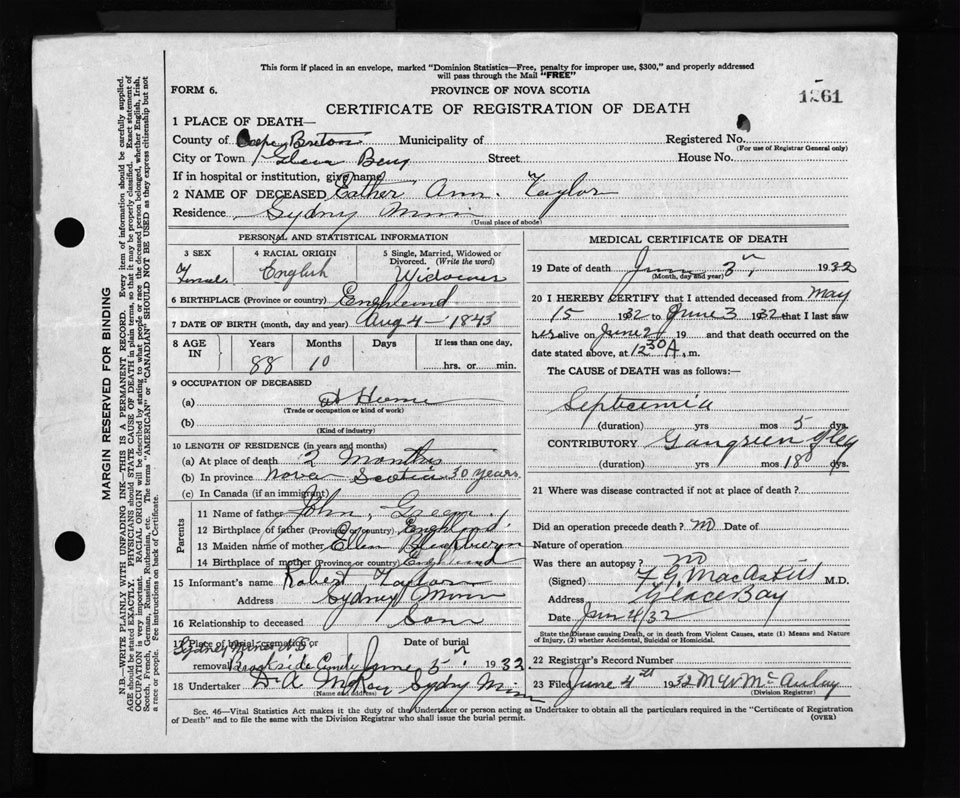 This form if placed in an envelope, marked "Dominion Statistics—Free, penalty for improper use, $300," and properly addressed
will pass through the Mail "FREE"
FORM 6.
PROVINCE OF NOVA SCOTIA
1261
CERTIFICATE OF REGISTRATION OF DEATH
1 PLACE OF DEATH—
County of Cape Breton Municipality of Registered No.
(For use of Registrar General only)
City or Town Glace Bay Street House No.
If in hospital or institution, give name
2 NAME OF DECEASED Esther Ann. Taylor
Residence Sydny Mines
(Usual place of abode)
PERSONAL AND STATISTICAL INFORMATION
3 SEX
Female
4 RACIAL ORIGIN
English
5 Single, Married, Widowed or
Divorced. (Write the word)
Widower
6 BIRTHPLACE (Province or country) England
7 DATE OF BIRTH (month, day and year) Aug 4 – 1843
8 AGE
IN
Years Months Days If less than one day,
88 10 hrs. or min.
9 OCCUPATION OF DECEASED
(a) at Home
(Trade or occupation or kind of work)
(b)
(Kind of industry)
10 LENGTH OF RESIDENCE (in years and months)
(a) At place of death 2 Months
(b) In province Nova Scotia 30 years
(c) In Canada (if an immigrant)
Parents
11 Name of father John, Green
12 Birthplace of father (Province or country) England
13 Maiden name of mother Ellen Blackburn
14 Birthplace of mother (Province or country) England
15 Informant's name Robert Taylor
Address Sydney Mines
16 Relationship to deceased Son
17 Place of burial, cremation or Date of burial
Sydney Mines N.S
removal Brookside Cemty June 5 1932
18 Undertaker D. A. McRay Sydny Mines
(Name and address)
MEDICAL CERTIFICATE OF DEATH
19 Date of death June 3 1932
(Month, day and year)
20 I HEREBY CERTIFY that I attended deceased from May
15 1932 to June 3 1932 that I last saw
her alive on June 2 19 and that death occurred on the
date stated above, at 12 30 A. m.
The CAUSE of DEATH was as follows:—
Septicemia
(duration) yrs mos 5 dys.
CONTRIBUTORY Gangreen of leg
(duration) yrs mos 18 dys.
21 Where was disease contracted if not at place of death?
Did an operation precede death? no Date of
Nature of operation
Was there an autopsy? no
(Signed) M.D.
Address Glace Bay
Date Jun 4/32
State the Disease causing Death, or in death from Violent Causes, state (1) Means and Nature
of Injury, (2) whether Accidental, Suicidal or Homicidal.
22 Registrar's Record Number
23 Filed June 4 1932 M W McAulay
(Division Registrar)
Sec. 46—Vital Statistics Act makes it the duty of the Undertaker or person acting as Undertaker to obtain all the particulars required in the "Certificate of Registration
of Death" and to file the same with the Division Registrar who shall issue the burial permit.
(OVER)
MARGIN RESERVED FOR BINDING
N.B.—WRITE PLAINLY WITH UNFADING INK—THIS IS A PERMANENT RECORD. Every item of information should be carefully supplied.
AGE should be stated EXACTLY. PHYSICIANS should STATE CAUSE OF DEATH in plain terms, so that it may be properly classified. Exact statement of
OCCUPATION is very important. RACIAL ORIGIN will be described by stating to what people or race the deceased person belonged, whether English, Irish,
Scotch, French, German, Russian, Ruthenian, etc. The terms "AMERICAN" or "CANADIAN" SHOULD NOT BE USED as they express citizenship but not
a race or people. See instructions on back of Certificate.